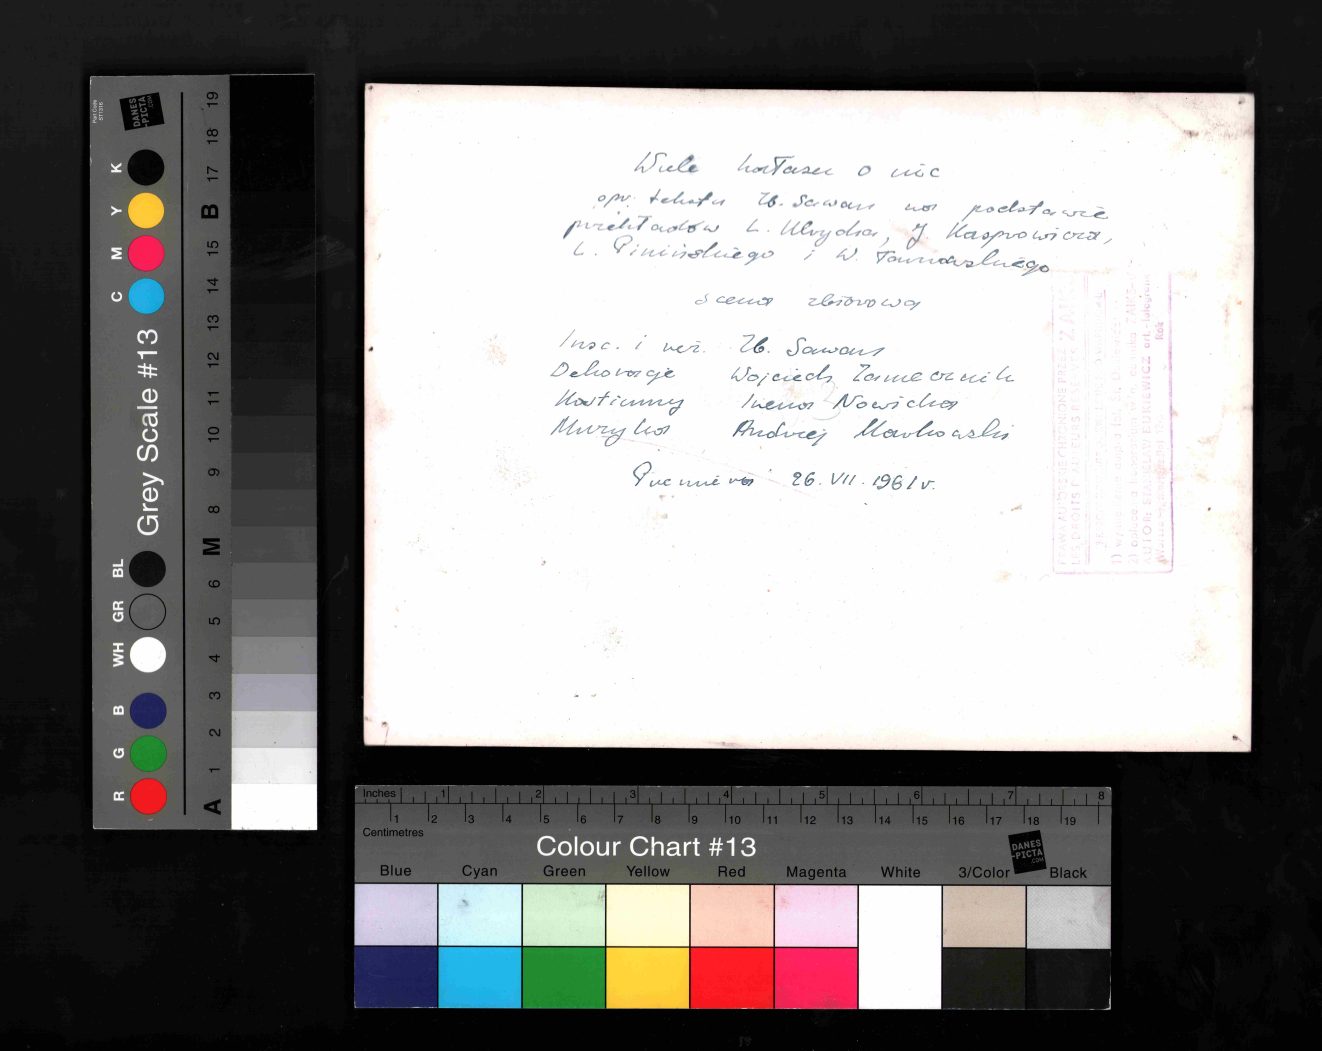 Wiele hałasu o nic
opr. tekstu Zb. Sawan na podstawie
przekładów L. Ulrycha, J. Kasprowicza,
L. Pinińskiego i W. Tarnawskiego
scena zbiorowa
Insc. i reż. Zb. Sawan
Dekoracje Wojciech Zamecznik
Kostiumy Irena Nowicka
Muzyka Andrzej Markowski
Premiera 26. VII. 1961 r.
DANES
-PICTA
.COM
Grey Scale #13
R G B WH GR BL C M Y K
A 1 2 3 4 5 6 M 8 9 10 11 12 13 14 15 B 17 18 19
Inches 1 2 3 4 5 6 7 8
1 2 3 4 5 6 7 8 9 10 11 12 13 14 15 16 17 18 19
Centimetres
Colour Chart #13
DANES
-PICTA
.COM
Blue Cyan Green Yellow Red Magenta White 3/Color Black